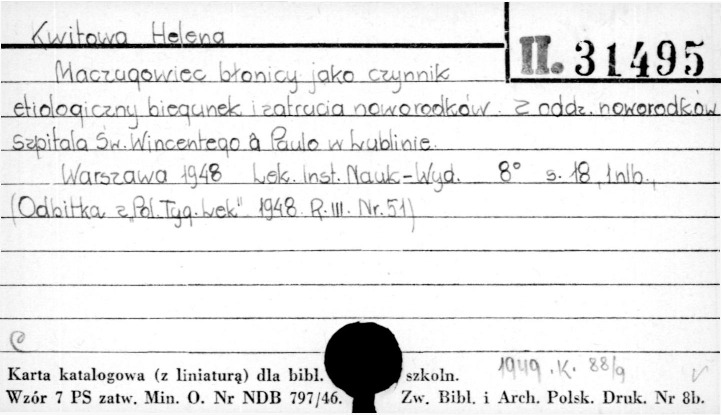 Kwitowa Helena
II. 31495
Maczugowiec błonicy jako czynnik
etiologiczny biegunek i zatrucia noworodków. Z oddz. noworodków
szpitala Św. Wincentego à Paulo w Lublinie.
Warszawa 1948 Lek. Inst. Nauk-Wyd. 8° s. 18, 1 nlb.,
(Odbitka z „Pol. Tyg. Lek" 1948. R. III. Nr. 51)
1949. K. 88/9
Karta katalogowa (z liniaturą) dla bibl. szkoln.
Wzór 7 PS zatw. Min. O. Nr NDB 797/46. Zw. Bibl. i Arch. Polsk. Druk. Nr 8b.